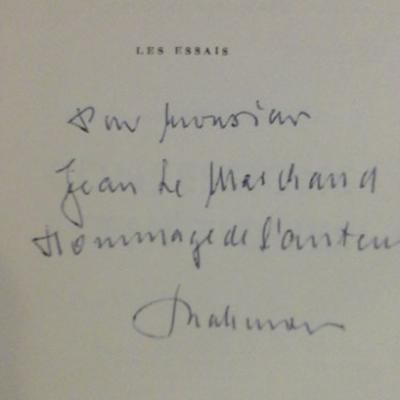 LES ESSAIS
Pour Monsieur
Jean Le Marchand
Hommage de l'auteur